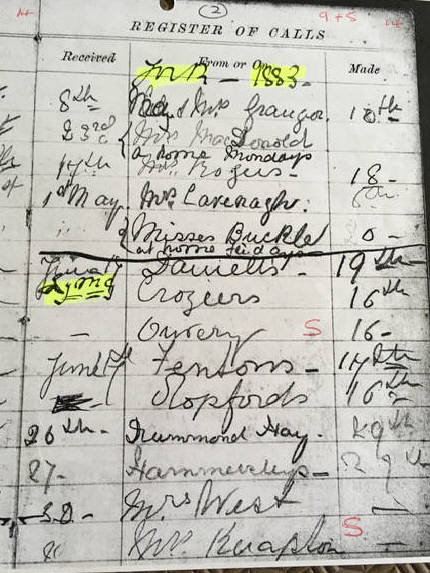 2
9 + S
REGISTER OF CALLS
Received From or On Made
1883-
8th Mrs Grainger 18th
23rd Mrs MacDonald
at home Mondays
14th Mrs Rogers - 18 -
1st May Mrs Cavenagh: 6th
Misses Buckle 8 -
at home fridays
Daniells - 19th
Lyme Croziers 16th
- S 16 -
June Fentons - 14th
Stopfords 16th
26th - Drummond Hay. 29th
27 - Hammersleys - 29th
30 - Mrs West -
S
Mrs Knapton -